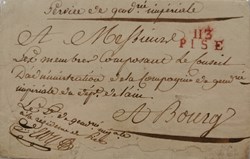 Service de gend.rie impériale
113
PISE
A Messieurs
Les membres Composant le Conseil
D'administration de la Compagnie de gend.rie
impériale du Dép.t de l'ain
A Bourg